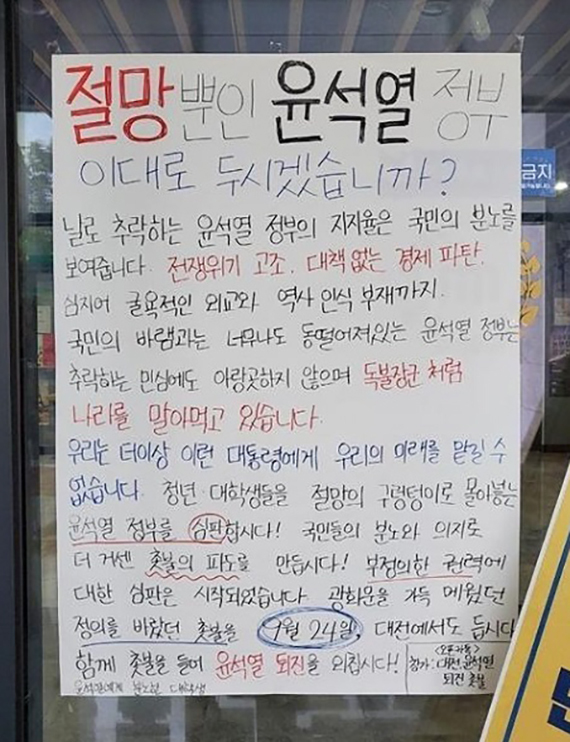 절망뿐인 윤석열 정부
이대로 두시겠습니까?
날로 추락하는 윤석열 정부의 지지율은 국민의 분노를
보여줍니다. 전쟁위기 고조. 대책 없는 경제 파탄.
심지어 굴욕적인 외교와 역사 인식 부재까지.
국민의 바램과는 너무나도 동떨어져있는 윤석열 정부는
추락하는 민심에도 아랑곳하지 않으며 독불장군 처럼
나라를 말아먹고 있습니다.
우리는 더이상 이런 대통령에게 우리의 미래를 맡길 수
없습니다. 청년·대학생들을 절망의 구렁텅이로 몰아넣는
윤석열 정부를 심판합시다! 국민들의 분노와 의지로
더 거센 촛불의 파도를 만듭시다! 부정의한 권력에
대한 심판은 시작되었습니다. 광화문을 가득 메웠던
정의를 바랐던 촛불을 9월 24일, 대전에서도 듭시다
함께 촛불을 들어 윤석열 퇴진을 외칩시다!
참가: 대전 윤석열
퇴진 촛불
윤석열에게 분노한 대학생
금지